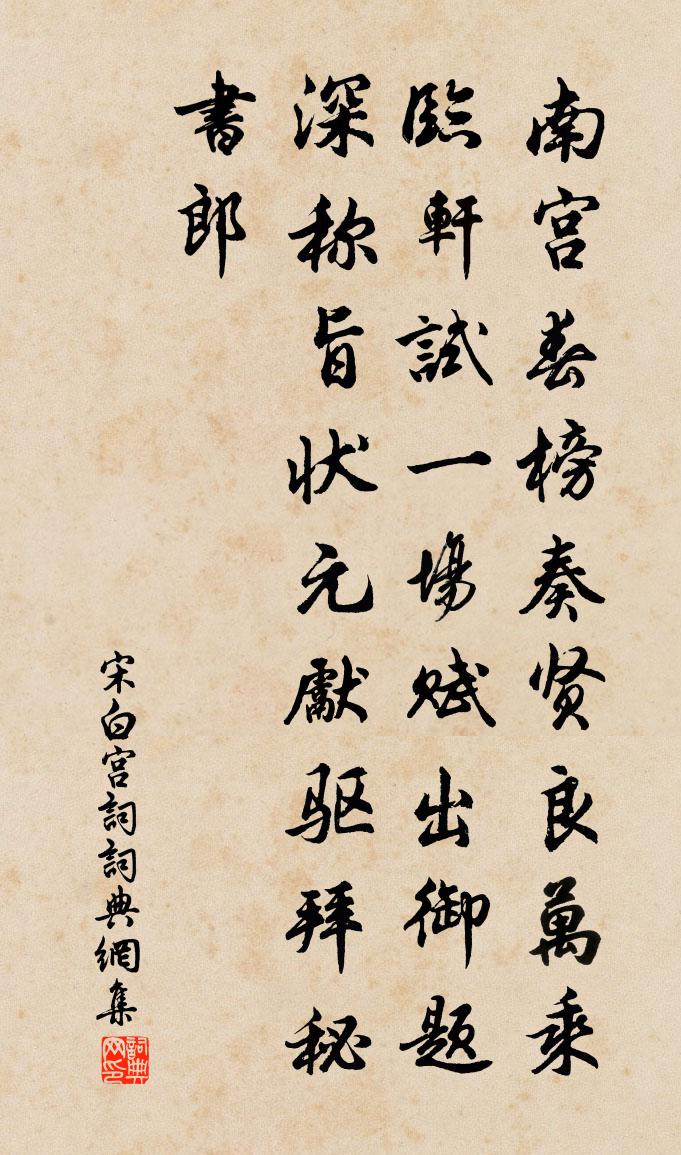 南宫春榜奏贤良萬乘
臨軒試一場赋出御题
深称旨状元獻驱拜秘
書郎
宋白宫詞詞典網集
詞典网印